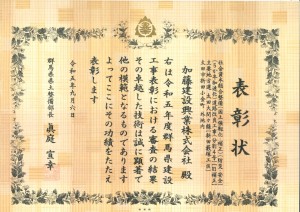 表彰状
加藤建設興業株式会社 殿
右は令和五年度群馬県建設
工事表彰における審査の結果
その卓越した技術は誠に顕著で
他の模範となるものであります
よってここにその功績をたたえ
表彰します
令和五年九月六日
群馬県県土整備部長 眞庭宣幸